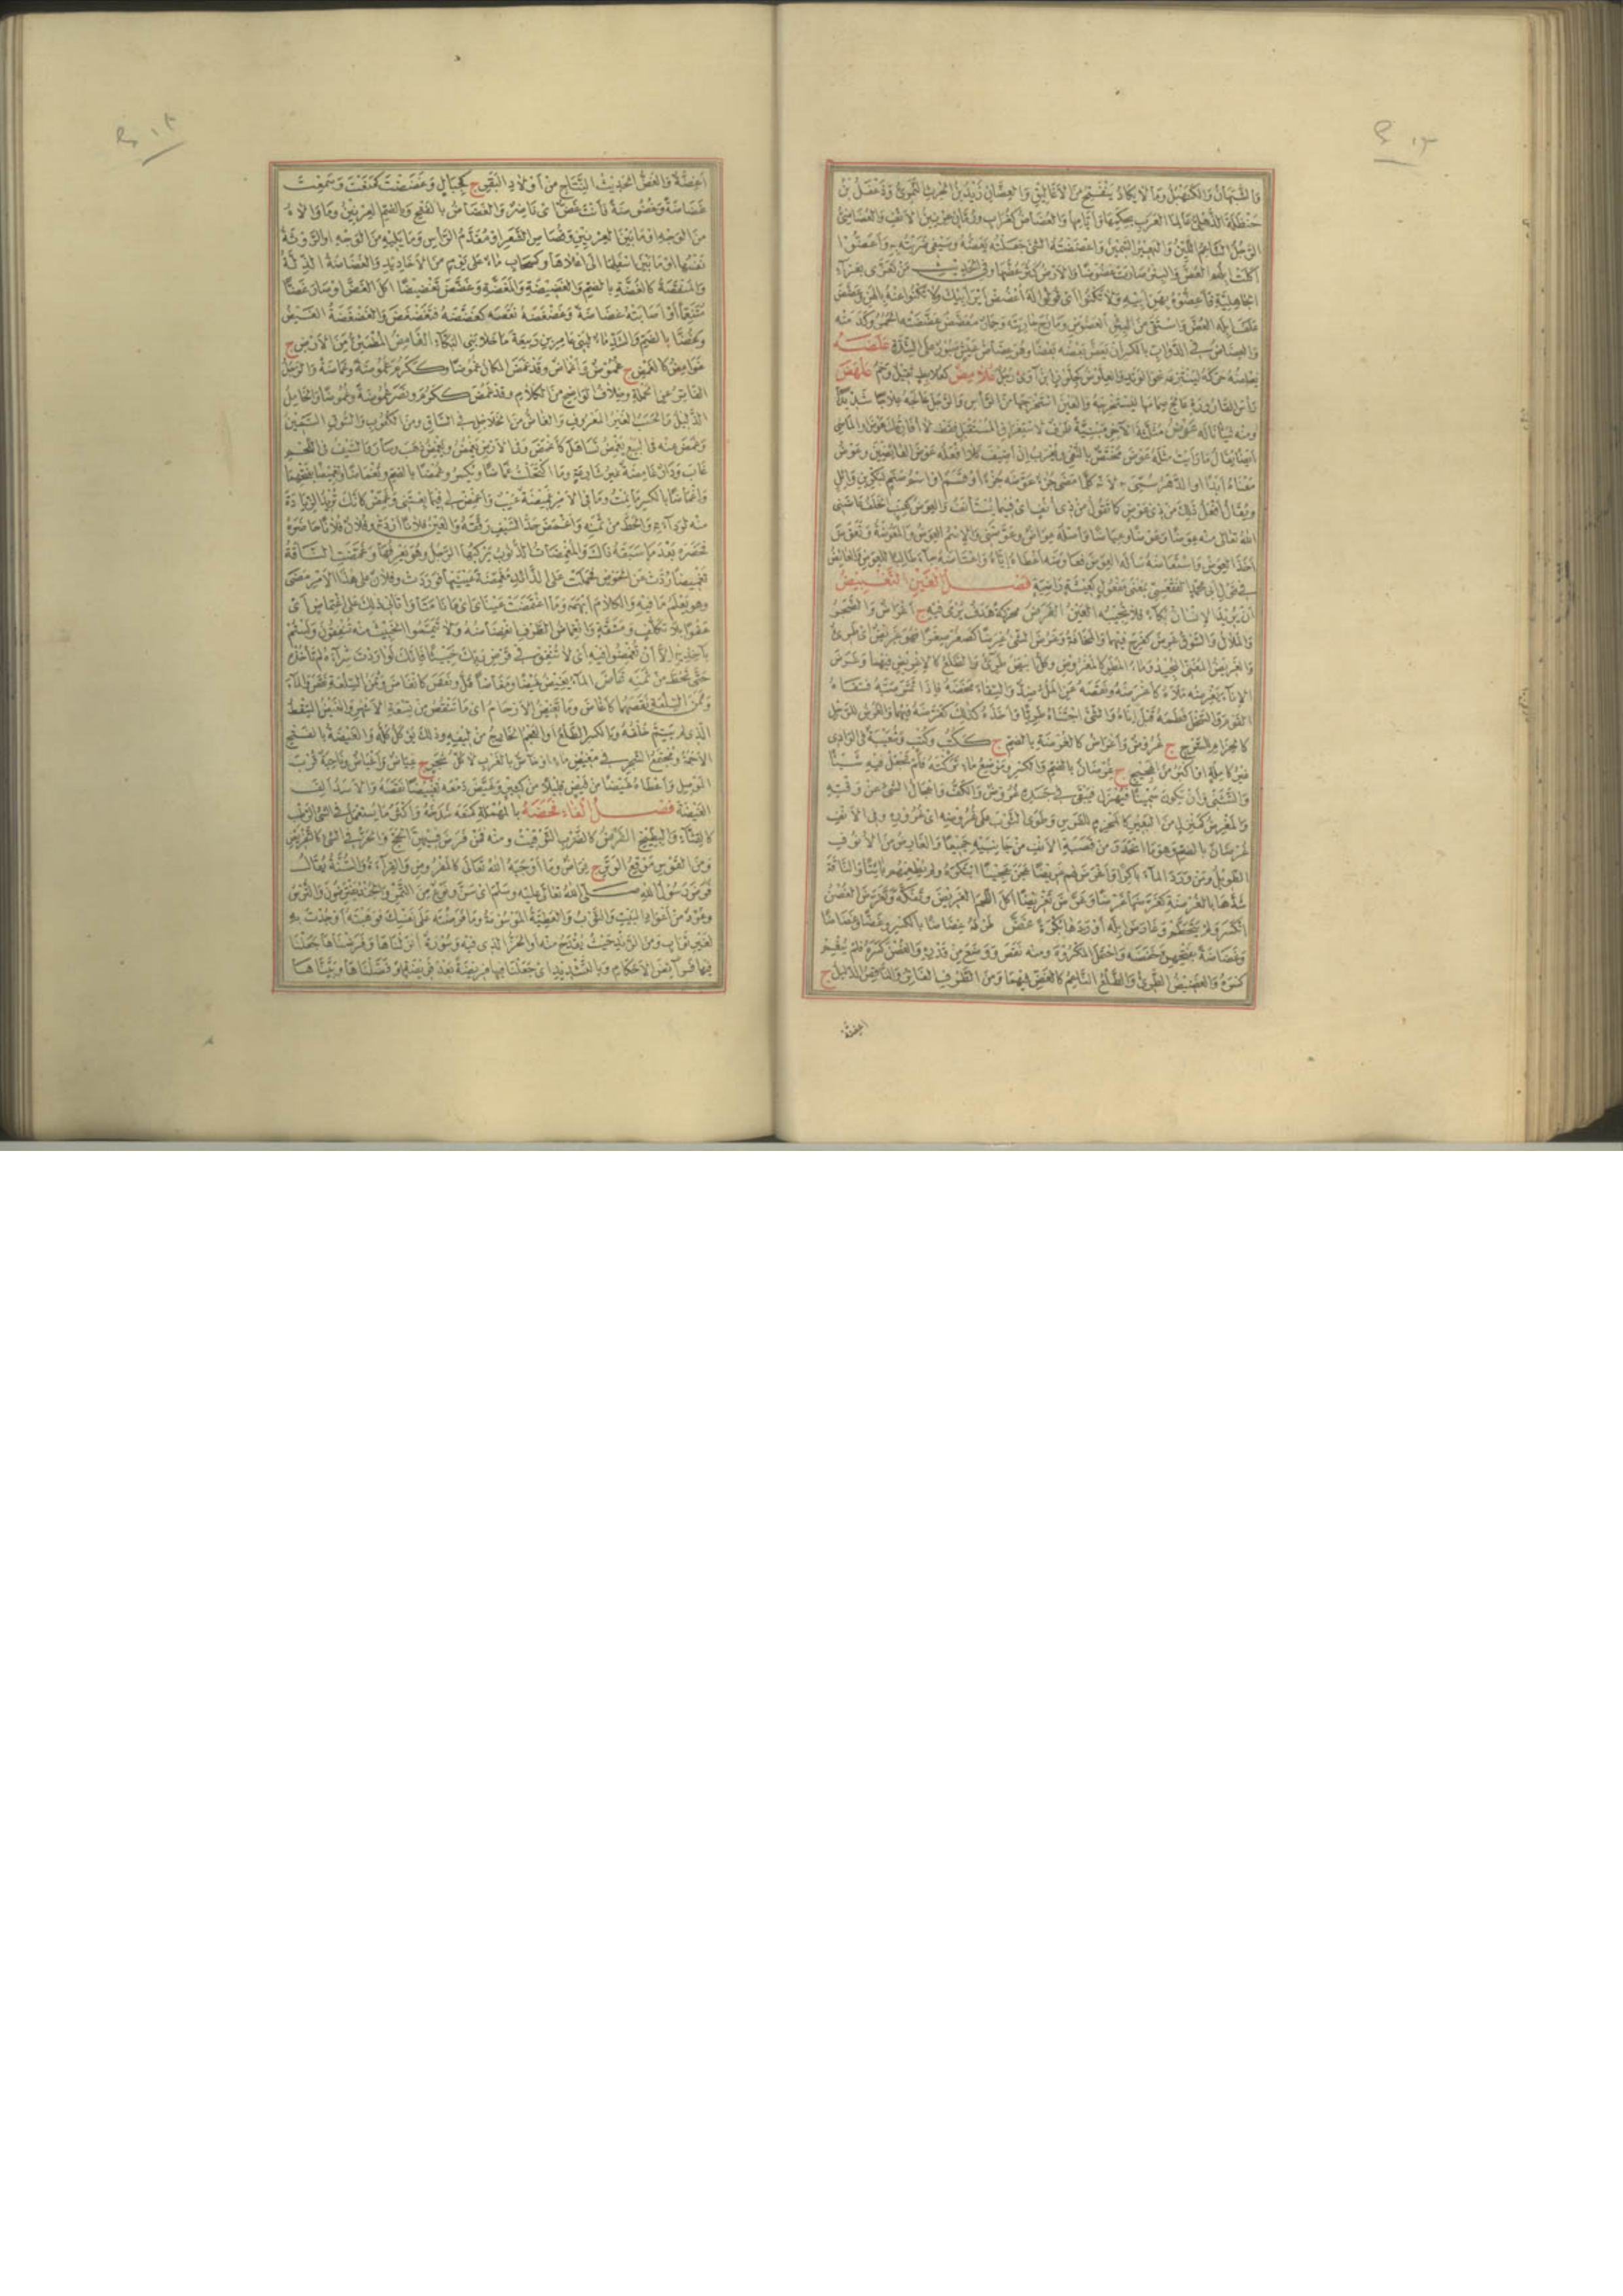 والشبهان والكنهبل وما لا يكاد ينفتح من الأغاليق والعضان زيد بن الحرث النمري ودغفل بن
حنظلة الذهلي عالما العرب بحكمها وأيامها والعضاض كغراب ورمان عرنين الأنف والعضاضي
الرجل الناعم اللين والبعير السمين وأعضضته الشيء جعلته يعضه وسيفي ضربته به وأعضوا
أكلت إبلهم العض والبئر صارت عضوضا والأرض كثر عضها وفي الحديث من تعزى بعزاء
الجاهلية فأعضوه بهن أبيه ولا تكنوا أي قولوا له اعضض أير أبيك ولا تكنوا عنه بالهن وعضض
علف إبله العض واستقى من البئر العضوض ومازح جاريته وحمار معضض عضضته الحمر وكدمته
والعضاض في الدواب بالكسر أن يعض بعضه بعضا وهو عضاض عيش صبور على الشدة علضه
يعلضه حركه لينتزعه نحو الوتد والعلوض كجلوز ابن آوى رجل علامض كعلابط ثقيل وخم علهض
رأس القارورة عالج صمامها ليستخرجه والعين استخرجها من الرأس والرجل عالجه علاجا شديدا
ومنه شيئا ناله عوض مثلثة الآخر مبنية ظرف لاستغراق المستقبل فقط لا أفارقك عوض أو الماضي
أيضا يقال ما رأيت مثله عوض مختص بالنفي ويعرب إن أضيف كلا أفعله عوض العائضين وعوض
معناه أبدا أو الدهر سمي به لأنه كلما مضى جزء عوضه جزء أو قسم أو اسم صنم لبكر بن وائل
ويقال افعل ذلك من ذي عوض كما تقول من ذي أنف أي فيما يستأنف والعوض كعنب الخلف عاضني
الله تعالى منه عوضا وعوضا وعياضا وعاوضه عواضا وعوضني والاسم العوض والمعوضة وتعوض
أخذ العوض واستعاضه سأله العوض فعاوضه أعطاه إياه واعتاضه جاءه طالبا للعوض والعائض
في قول أبي محمد الفقعسي بمعنى مفعول كعيشة راضية فصل الغين التغبيض
أن يريد الإنسان بكاء فلا تجيبه العين الغرض محركة هدف يرمى فيه ج أغراض والضجر
والملال والشوق غرض كفرح فيهما والمخافة وغرض الشيء غرضا كصغر صغرا فهو غريض أي طري
والغريض المغني المجيد وماء المطر كالمغروض وكل أبيض طري والطلع كالإغريض فيهما وغرض
الإناء يغرضه ملأه كأغرضه ونقصه عن الملء ضد والسقاء مخضه فإذا ثمر صبه فسقاه
القوم والسخل فطمه قبل إناه والشيء اجتناه طريا وأخذه كذلك كغرضه فيهما والغرض للرحل
كالحزام للسرج ج غروض وأغراض كالغرضة بالضم ج ككتب وكتب وشعبة في الوادي
غير كاملة أو أكبر من الهجيج ج غرضان بالضم والكسر وموضع ماء تركته فلم تجعل فيه شيئا
والتثني وأن تكون سمينا فيهزل فيبقى في جسده غروض والكف وإعجال الشيء عن وقته
والمغرض كمنزل من البعير كالمحزم للفرس وطوى الثوب على غروضه أي غروره وفي الأنف
غرضان بالضم وهو ما انحدر من قصبة الأنف من جانبيه جميعا والغارض من الأنوف
الطويل ومن ورد الماء باكرا وأغرض لهم غريضا عجن عجينا ابتكره ولم يطعمهم بائتا والناقة
شدها بالغرضة كغرضها غرضا وغرض تغريضا أكل اللحم الغريض وتفكه وتغرض الغصن
انكسر ولم يتحطم وغارض إبله أوردها بكرة غض طرفه غضاضا بالكسر وغضا وغضاضا
وغضاضة بفتحهن خفضه واحتمل المكروه ومنه نقص ووضع من قدره والغصن كسره فلم ينعم
كسره والغضيض الطري والطلع الناعم كالغض فيهما ومن الطرف الفاتر والناقص الذليل ج
أغضة
أغضة والغض الحديث النتاج من أولاد البقر ج كجبال وغضضت كمنعت وسمعت
غضاضة وغضوضة فأنت غض أي ناضر والغضاض بالفتح والضم العرنين وما والاه
من الوجه أو ما بين العرنين وقصاص الشعر أو مقدم الرأس وما يليه من الوجه أو الروثة
نفسها أو ما بين أسفلها إلى أعلاها وكسحاب ماء على يوم من الأخاديد والغضاضة الذلة
والمنقصة كالغضة بالضم والغضيضة والمغضة وغضض تغضيضا أكل الغض أو صار غضا
متنعما أو أصابته غضاضة وغضغضه نقصه كغضضه فتغضغض والغضغضة الغيض
وغضا بالضم والشد ماء لبني عامر بن ربيعة ما خلا بني البكاء الغامض المطمئن من الأرض ج
غوامض كالغمض ج غموض وأغماض وقد غمض المكان غموضا وككرم غموضة وغماضة والرجل
الفاتر عن الحملة وخلاف الواضح من الكلام وقد غمض ككرم ونصر غموضة وغموضا والخامل
الذليل والحسب الغير المعروف والغاص من الخلاخل في الساق ومن الكعوب والسوق السمين
وغمض عنه في البيع يغمض تساهل كأغمض وفي الأرض يغمض ويغمض ذهب وسار والسيف في اللحم
غاب ودار غامضة غير شارعة وما اكتحلت غماضا ويكسر وغمضا بالضم وتغماضا وتغميضا بفتحهما
وإغماضا بالكسر ما نمت وما في الأمر غميضة عيب وأغمض لي فيما بعتني وغمض كأنك تريد الزيادة
منه لرداءته والحط من ثمنه وأغمض حد السيف رققه والعين فلانا ازدرته وفلان فلانا حاضره
فحضره بعد ما سبقه ذلك والمغمضات الذنوب يركبها الرجل وهو يعرفها وغمضت الناقة
تغميضا ردت عن الحوض فحملت على الذائد مغمضة عينيها فوردت وفلان على هذا الأمر مضى
وهو يعلم ما فيه والكلام أبهمه وما اغتمضت عيناي أي ما نامتا وأتاني ذلك على اغتماض أي
عفوا بلا تكلف ومشقة وانغماض الطرف انغضاضه ولا تيمموا الخبيث منه تنفقون ولستم
بآخذيه إلا أن تغمضوا فيه أي لا تنفق في قرض ربك خبيثا فإنك لو أردت شراءه لم تأخذه
حتى تحط من ثمنه غاض الماء يغيض غيضا ومغاضا قل ونقص كانغاض وثمن السلعة نقص والماء
وثمن السلعة نقصهما كأغاض وما تغيض الأرحام أي ما تنقص من تسعة الأشهر والغيض السقط
الذي لم يتم خلقه وبالكسر الطلع أو العجم الخارج من ليفه وذلك يؤكل كله والغيضة بالفتح
الأجمة ومجتمع الشجر في مغيض ماء أو خاص بالغرب لا كل شجر ج غياض وأغياض وناحية قرب
الموصل وأعطاه غيضا من فيض قليلا من كثير وغيض دمعه تغييضا نقصه والأسد ألف
الغيضة فصل الفاء فحضه بالمهملة كمنعه شدخه وأكثر ما يستعمل في الشيء الرطب
كالقثاء والبطيخ الفرض كالضرب التوقيت ومنه فمن فرض فيهن الحج والحز في الشيء كالتفريض
ومن القوس موقع الوتر ج فراض وما أوجبه الله تعالى كالمفروض والقراءة والسنة يقال
فرض رسول الله صلى الله تعالى عليه وسلم أي سن ونوع من التمر والجند يفترضون والترس
وعود من أعواد البيت والثوب والعطية الموسومة وما فرضته على نفسك فوهبته أو جدت به
لغير ثواب ومن الزند حيث يقدح منه أو الحز الذي فيه وسورة أنزلناها وفرضناها جعلنا
فيها فرائض الأحكام وبالتشديد أي جعلنا فيها فريضة بعد فريضة أو فصلناها وبيناها